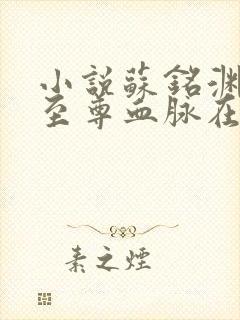 小說蘇銘淵
至尊血脈在
素之煙